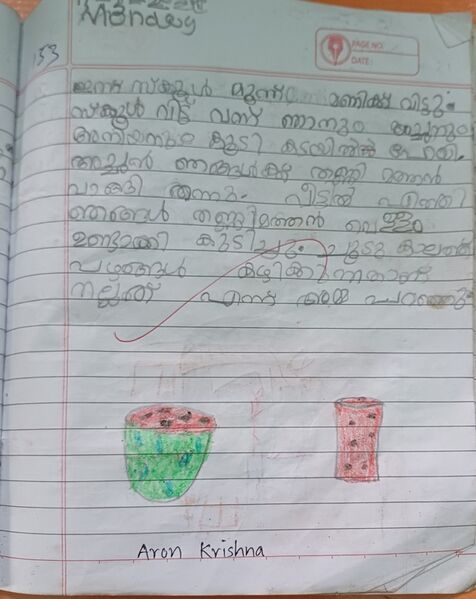 Monday
133
PAGE NO.
DATE:
ഇന്ന് സ്കൂൾ മൂന്ന് മണിക്ക് വിട്ടു.
സ്കൂൾ വിട്ട് വന്ന് ഞാനും അച്ഛനും
അനിയനും കൂടി കടയിൽ പോയി.
അച്ഛൻ ഞങ്ങൾക്ക് തണ്ണി മത്തൻ
വാങ്ങി തന്നു. വീട്ടിൽ എത്തി
ഞങ്ങൾ തണ്ണിമത്തൻ വെള്ളം
ഉണ്ടാക്കി കുടിച്ചു. ചൂടു കാലത്ത്
പഴങ്ങൾ കഴിക്കുന്നതാണ്
നല്ലത് എന്ന് അമ്മ പറഞ്ഞു
Aron Krishna